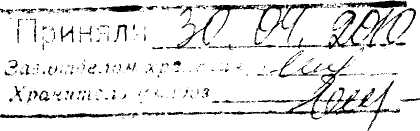 Приняли 30.04.2010
Зав.отделом хранения
Хранитель фондов